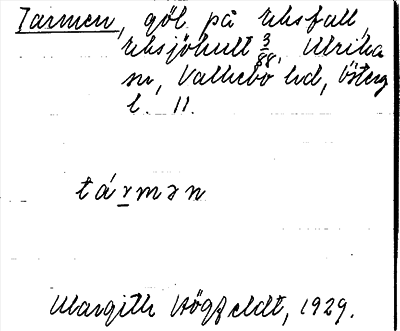 Tarmen, göl på Eksfall,
Eksjöhult 3/88, Ulrika
sn, Vallebo hd, Österg
l. 11.
tármən
Margith Högfeldt, 1929.